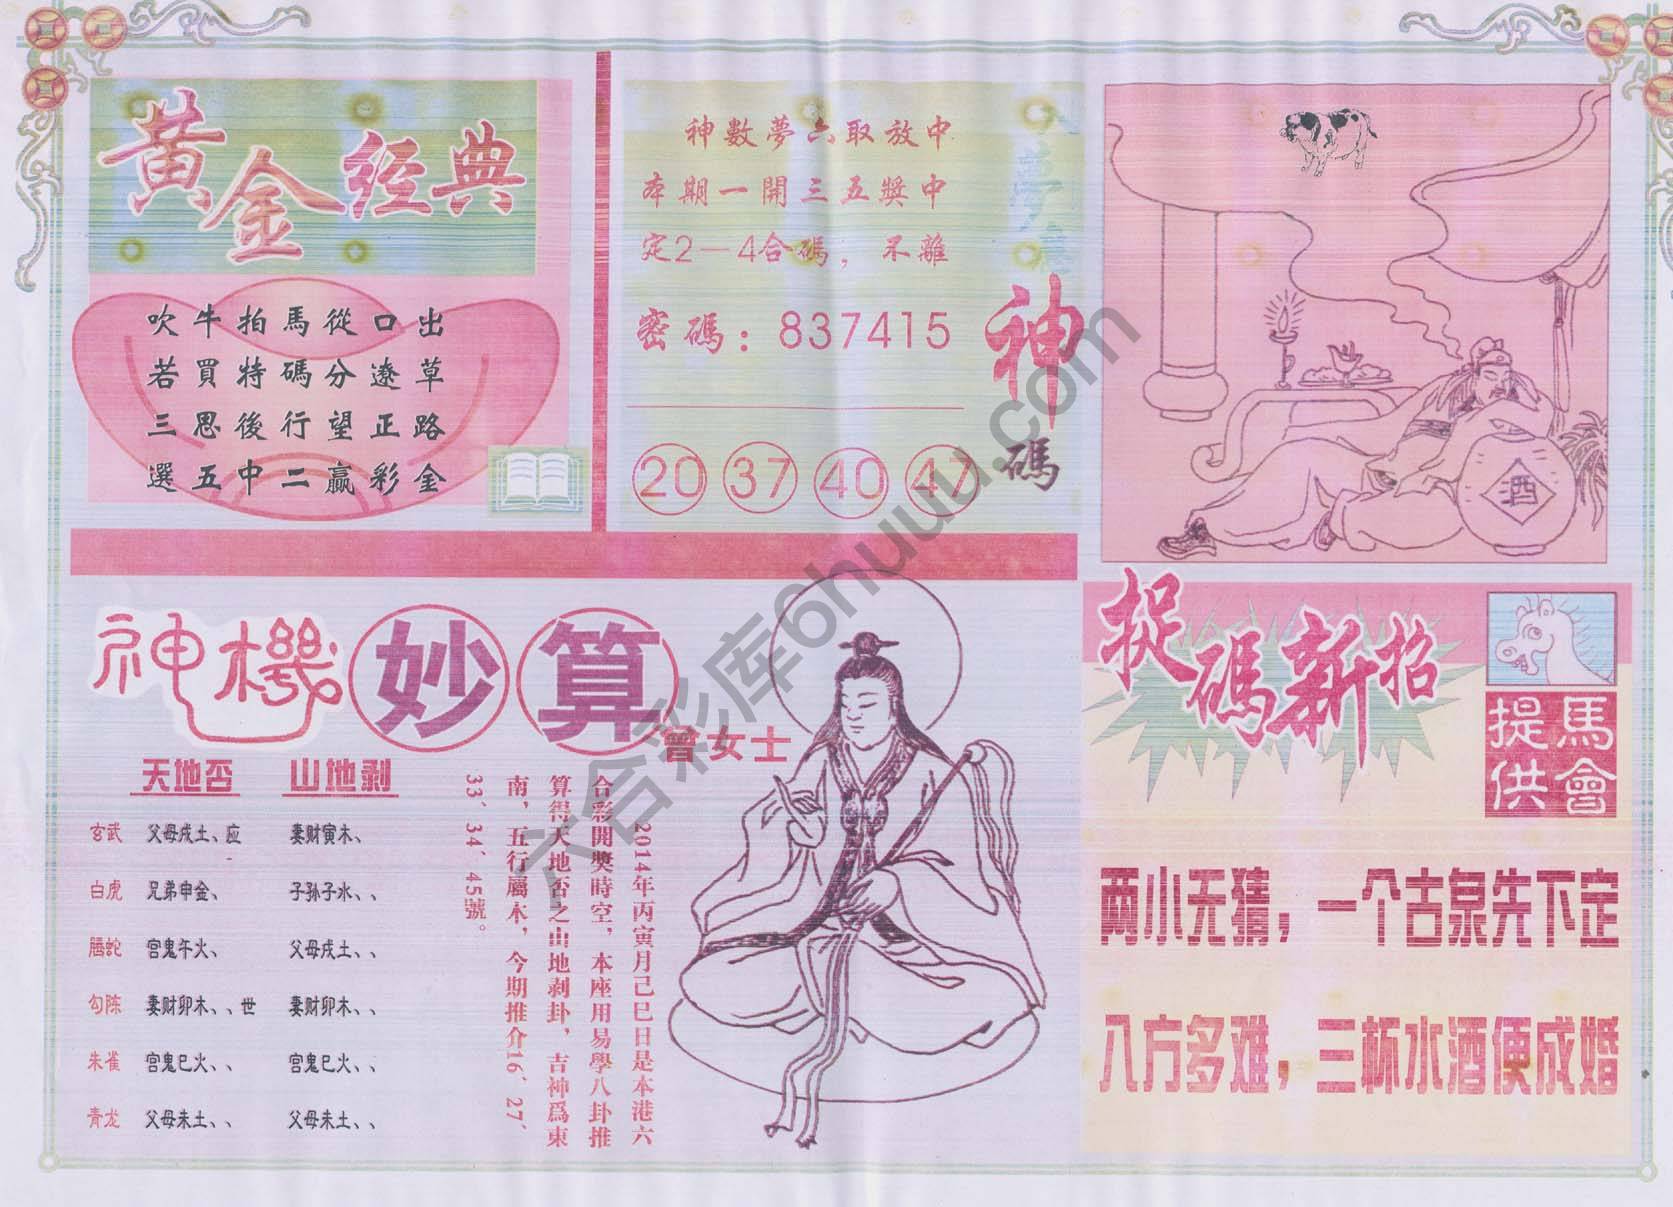 黄金经典
吹牛拍馬從口出
若買特碼分遼草
三思後行望正路
選五中二贏彩金
神數夢六取放中
本期一開三五獎中
定2—4合碼，不離
密碼：837415
20 37 40 47
神碼
酒
神機妙算
曾女士
天地否 山地剥
玄武 父母戌土、应 妻财寅木、
白虎 兄弟申金、 子孙子水、、
腾蛇 官鬼午火、 父母戌土、、
勾陈 妻财卯木、、世 妻财卯木、、
朱雀 官鬼巳火、、 官鬼巳火、、
青龙 父母未土、、 父母未土、、
2014年丙寅月己巳日是本港六
合彩開獎時空，本座用易學八卦推
算得天地否之山地剥卦，吉神爲東
南，五行屬木，今期推介16、27、
33、34、45號。
捉碼新招
馬會
提供
兩小无猜，一个古泉先下定
八方多难，三杯水酒便成婚
六合彩库6huuu.com